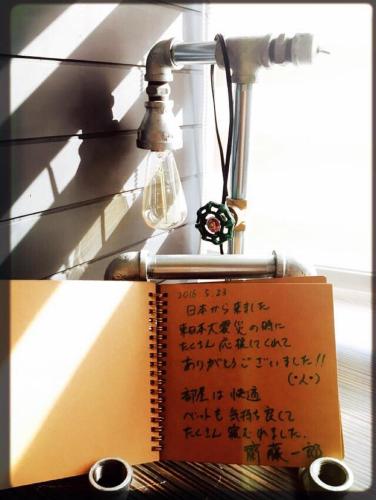 2016.5.23
日本から来ました
東日本大震災の時に
たくさん応援してくれて
ありがとうございました!!
(・人・)
部屋は快適
ベットも気持ち良くて
たくさん寝むれました.
齋藤一郎